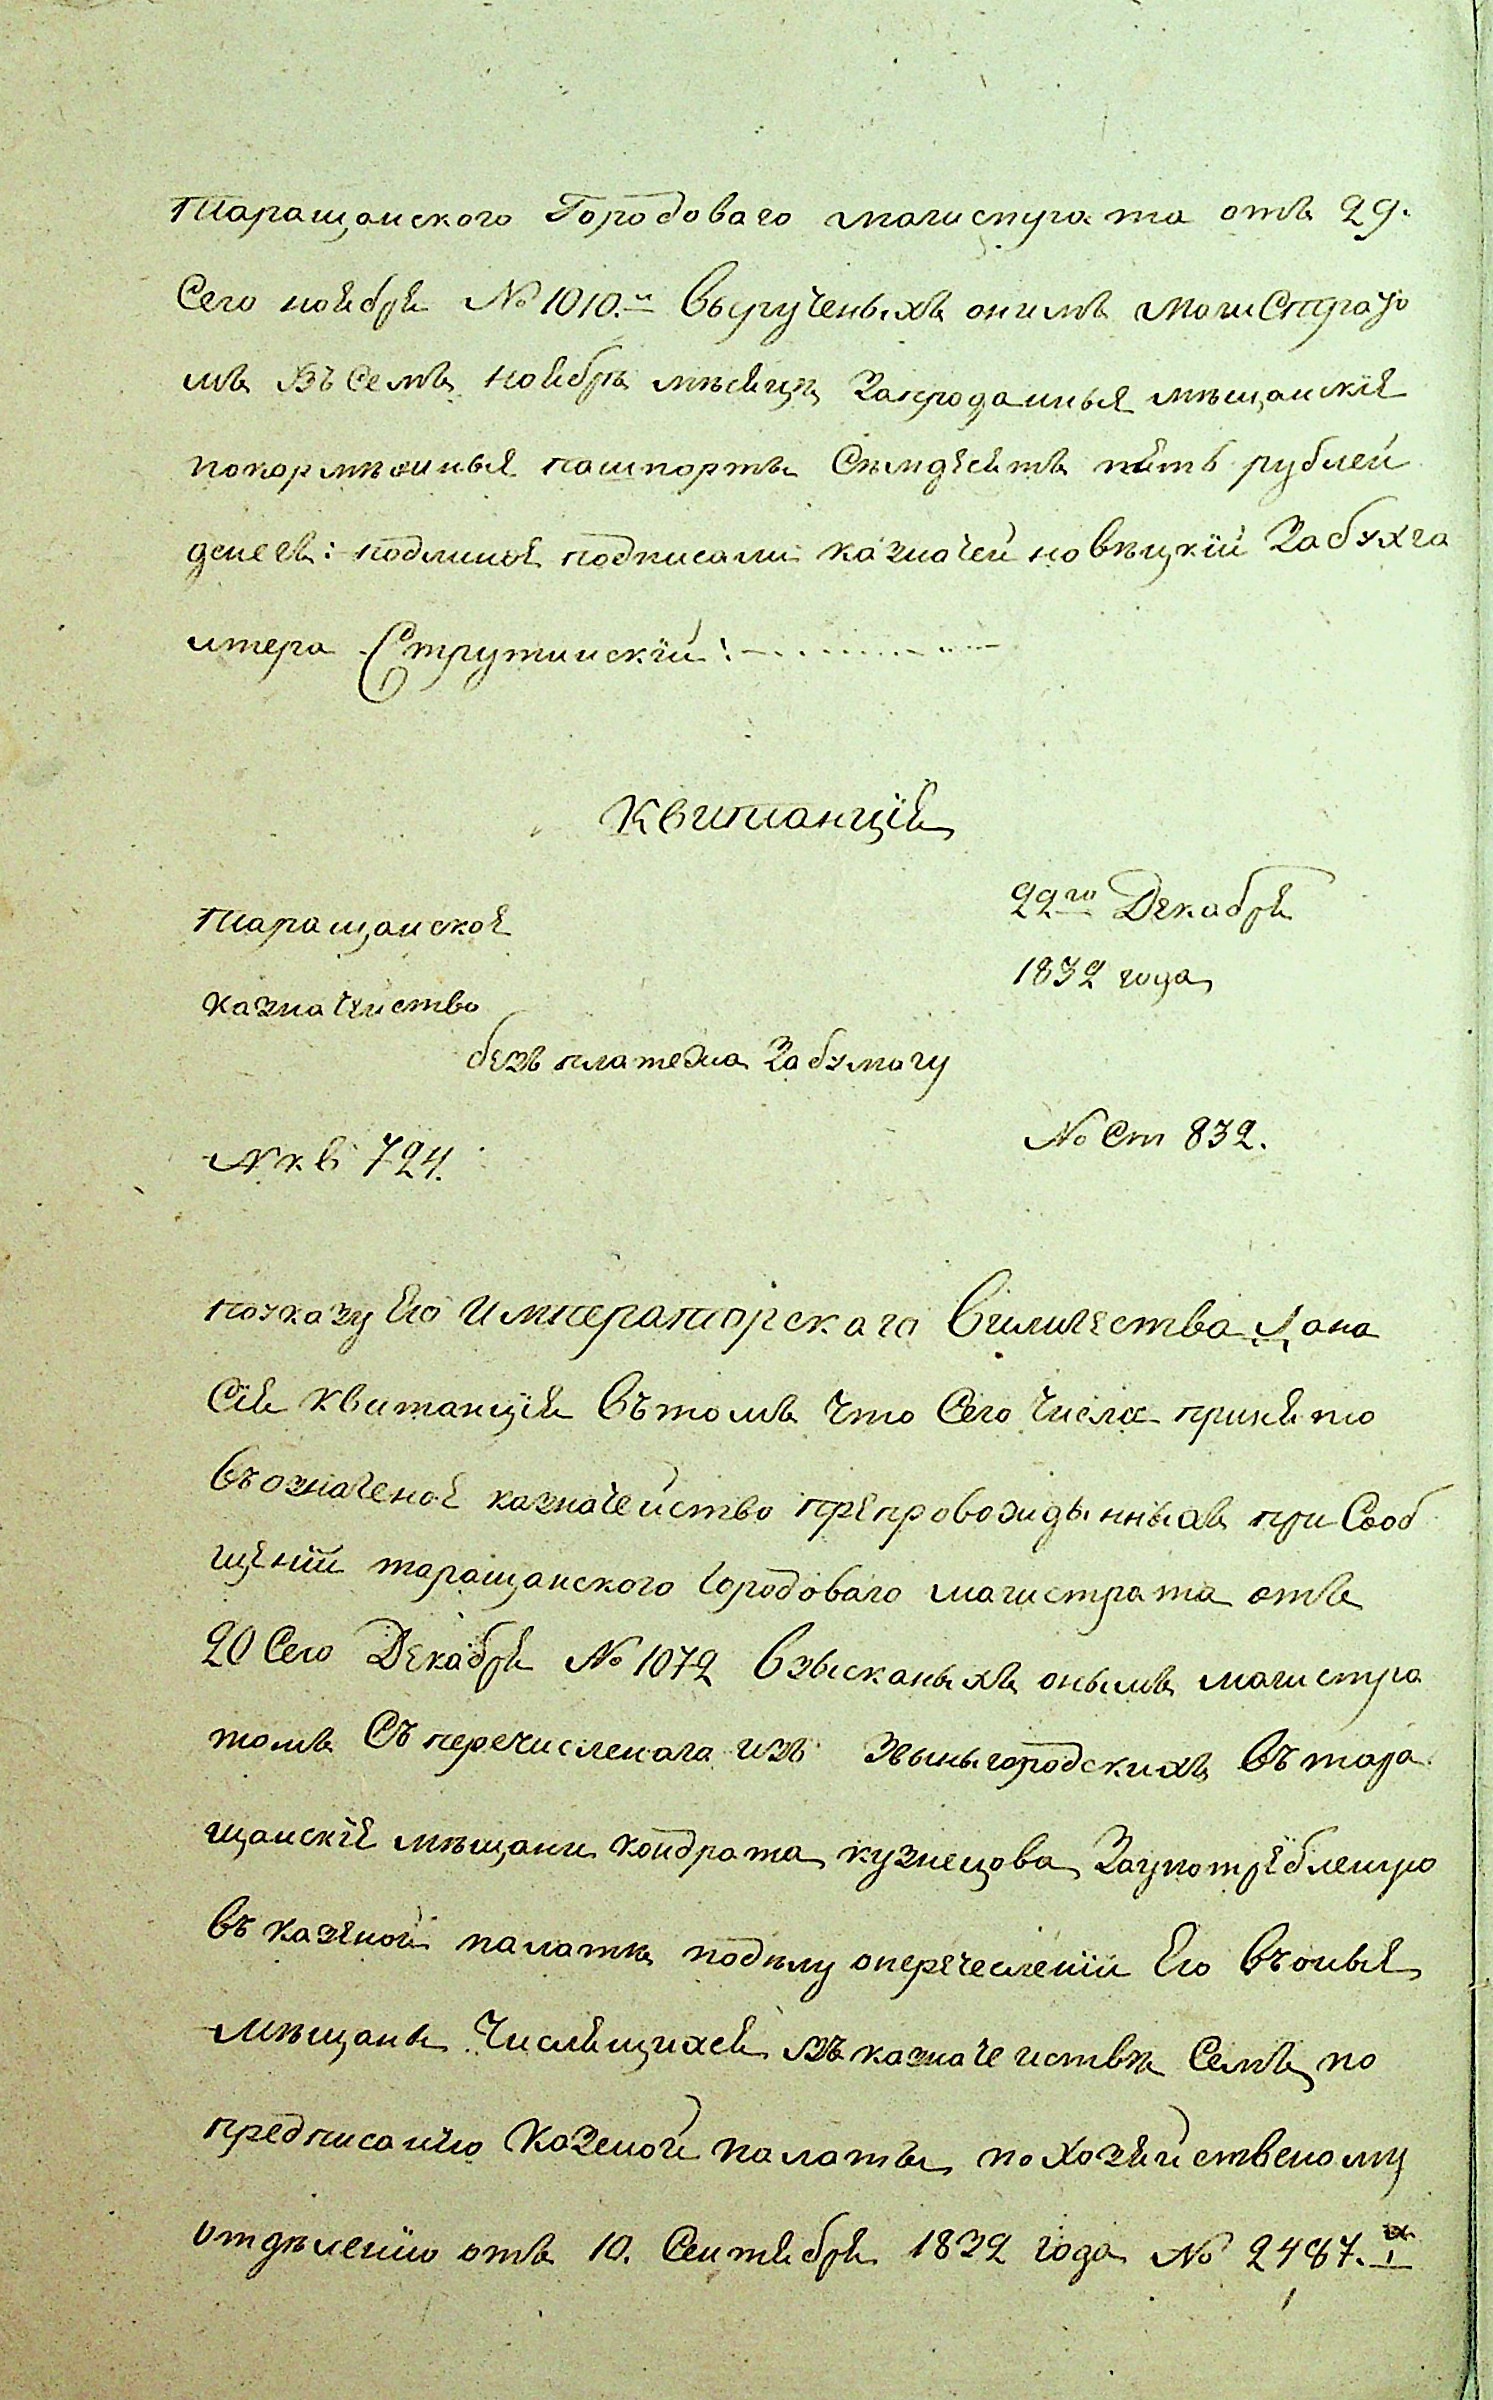 Таращанского Городоваго магистрата отъ 29.
Сего ноября № 1010.м вырученыхъ онимъ магистрато
мъ въ семъ ноябрѣ мѣсяцѣ Запроданыя мѣщанскія
покормѣжныя пашпорты Сѣмдесятъ пять рублей
денегъ: подлиное подписали казначей новѣцкій Забухга
лтера Струтинскій:
Квитанція
Таращанское
22го Декабря
1832 года
казначейство
безъ платежа Забумагу
N кв 724.
№ Ст 832.
поуказу Его Императорскаго Величества Дана
Сія квитанція въ томъ что Сего числа принято
въ означеное казначейство препровожденныхъ при Сооб
щеніи таращанского Городоваго магистрата отъ
20 Сего Декабря № 1072 взысканыхъ онымъ магистра
томъ Съ перечисленаго изъ Звенигородскихъ въ тара
щанскіе мѣщани кондрата кузнецова Заупотребленую
въ казеной палатѣ подѣлу оперечесленіи Его въ оныя
мѣщаны числящихся въ казначействѣ Семъ по
предписанію Казеной палаты по Хозяйственому
отдѣленію отъ 10. Сентября 1832 года № 2487.